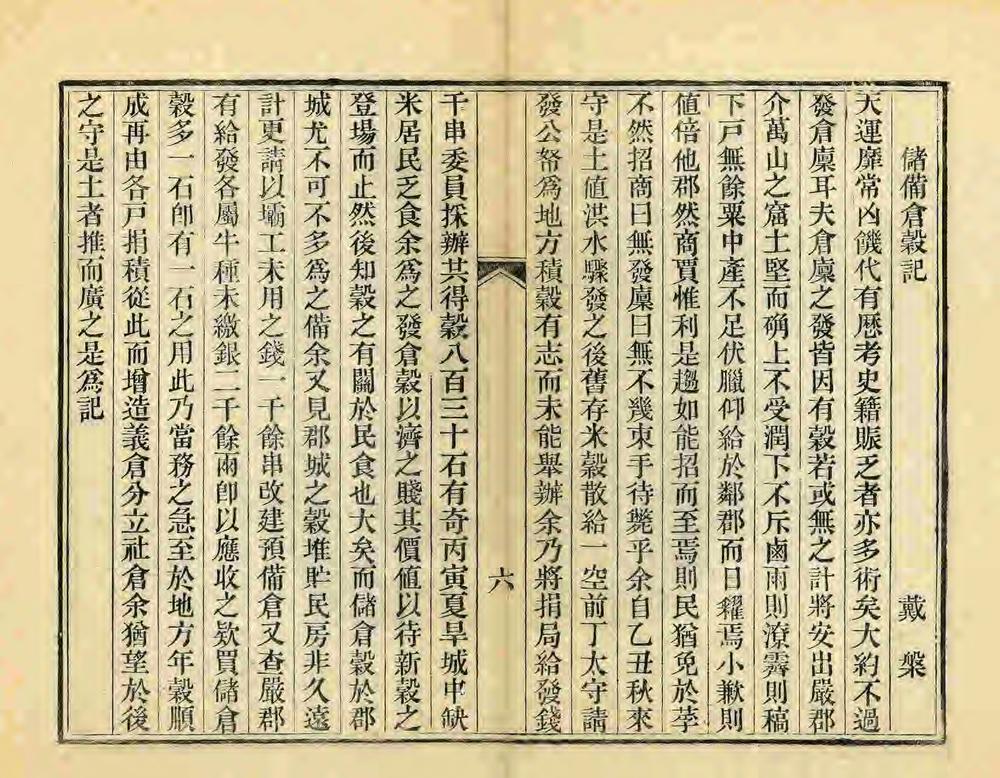 儲備倉穀記 戴槃
天運靡常凶饑代有歷考史籍賑乏者亦多術矣大約不過
發倉廩耳夫倉廩之發皆因有穀若或無之計將安出嚴郡
介萬山之窟土堅而确上不受潤下不斥鹵雨則潦霽則稿
下戶無餘粟中產不足伏臘仰給於鄰郡而日糴焉小歉則
值倍他郡然商賈惟利是趨如能招而至焉則民猶免於莩
不然招商曰無發廩曰無不幾束手待斃乎余自乙丑秋來
守是土值洪水驟發之後舊存米穀散給一空前丁太守請
發公帑爲地方積穀有志而未能舉辦余乃將捐局給發錢
六
千串委員採辦共得穀八百三十石有奇丙寅夏旱城中缺
米居民乏食余爲之發倉穀以濟之賤其價值以待新穀之
登場而止然後知穀之有關於民食也大矣而儲倉穀於郡
城尤不可不多爲之備余又見郡城之穀堆貯民房非久遠
計更請以壩工未用之錢一千餘串改建預備倉又查嚴郡
有給發各屬牛種未繳銀二千餘兩卽以應收之欵買儲倉
穀多一石卽有一石之用此乃當務之急至於地方年穀順
成再由各戶捐積從此而增造義倉分立社倉余猶望於後
之守是土者推而廣之是爲記